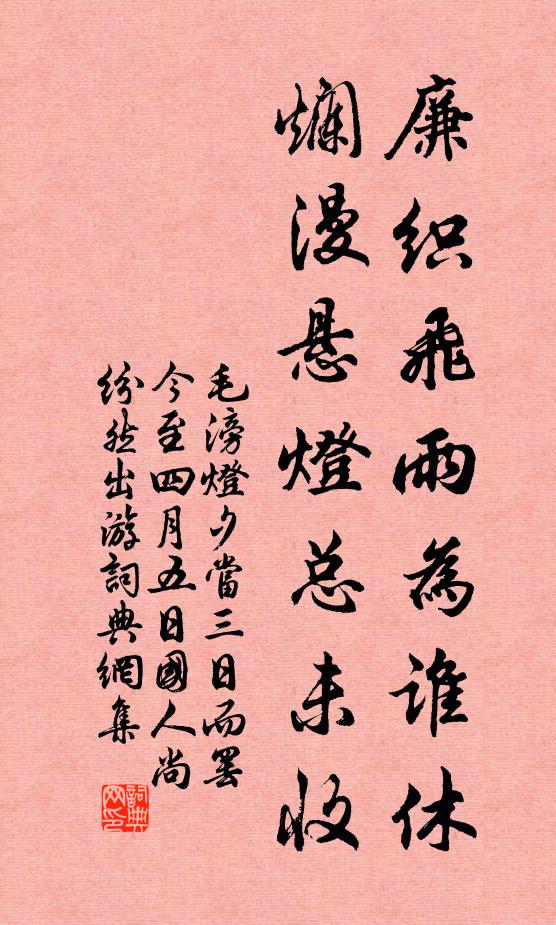 廉织飛雨為誰休
爛漫悬燈总未收
毛滂燈夕當三日而罢
今至四月五日國人尚
纷然出游詞典網集
詞典网印